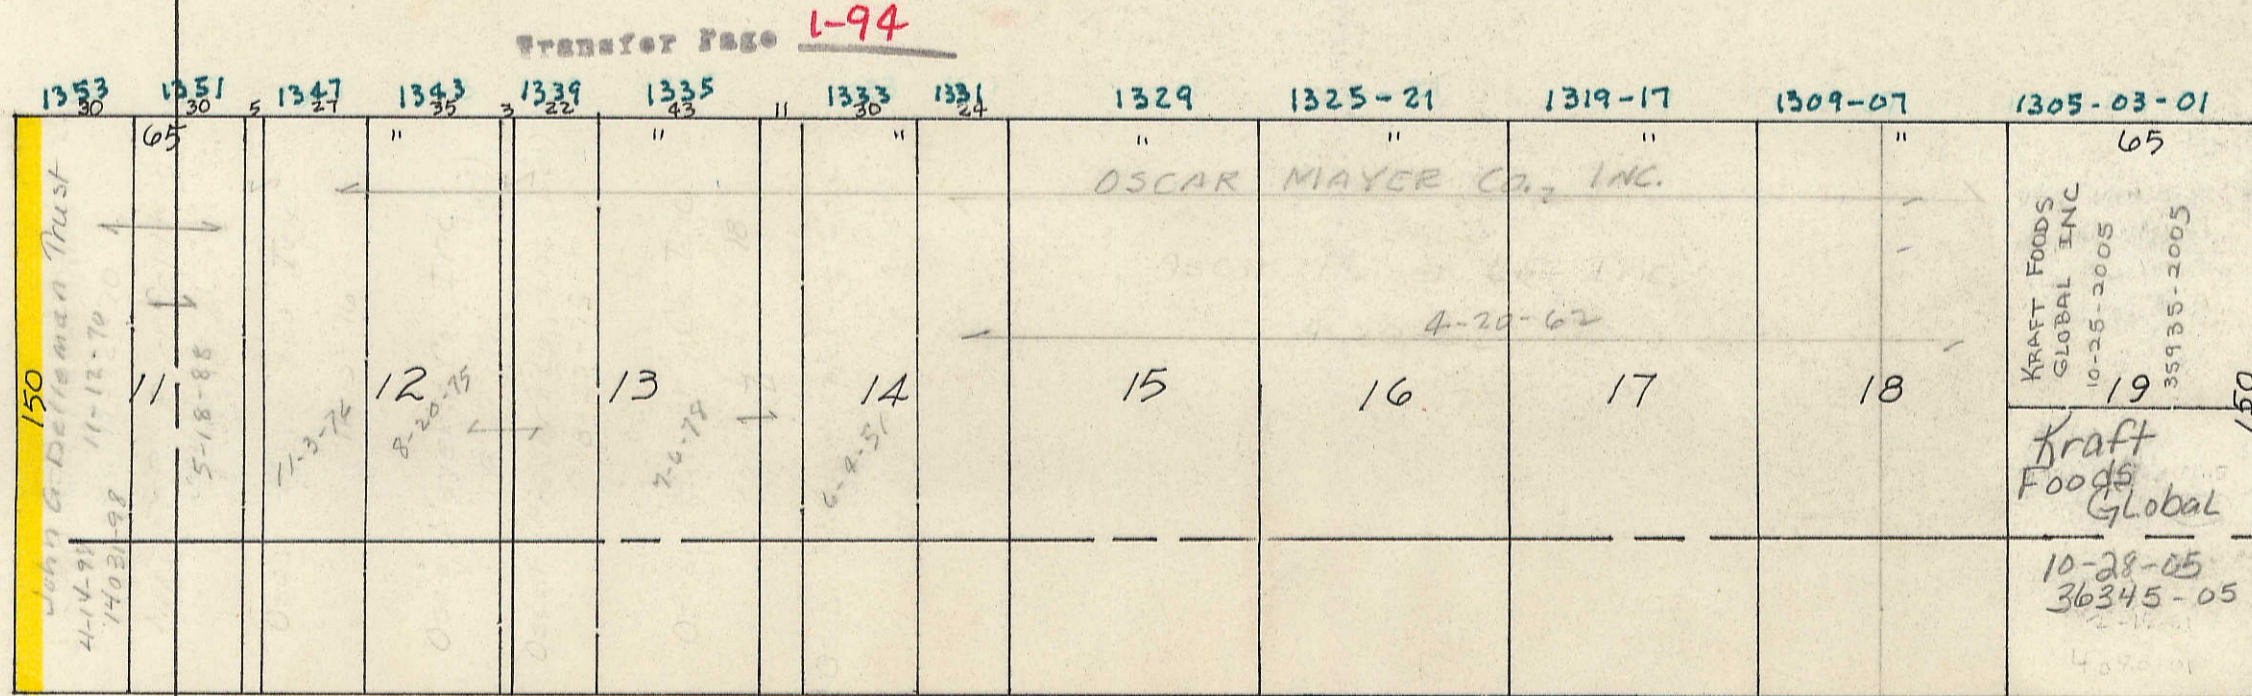 Transfer Page 1-94
1353 1351 1347 1343 1339 1335 1333 1331 1329 1325-21 1319-17 1309-07 1305-03-01
30 30 5 27 35 3 22 43 11 30 24
65 " " " " " " " 65
OSCAR MAYER CO., INC.
4-20-62
150
John G.
Trust
11-12-70
4-14-98
14031-98
5-18-88
11-3-76
8-20-75
7-6-78
6-8-51
11 12 13 14 15 16 17 18 19
KRAFT FOODS
GLOBAL INC
10-25-2005
35935-2005
150
Kraft
Foods
Global
10-28-05
36345-05